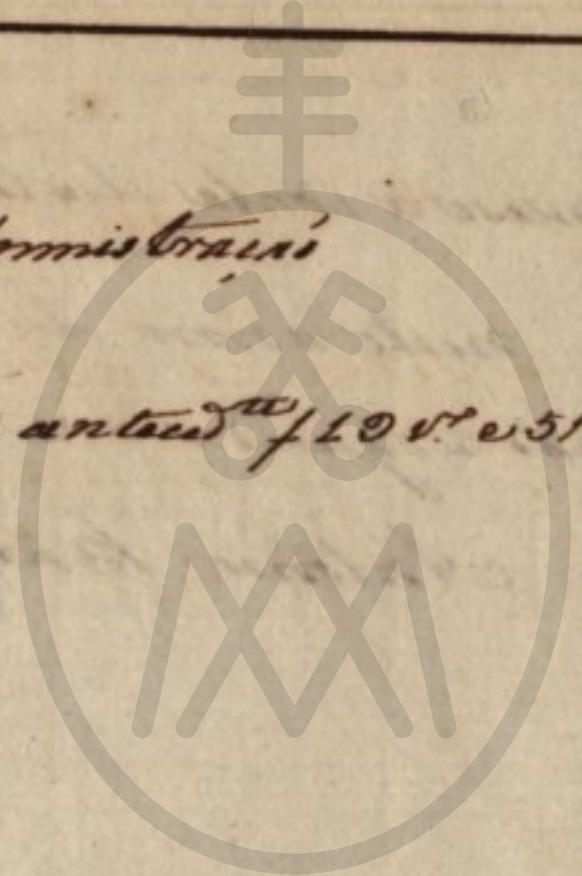 mnistração
anteced.tte f 19 v.º e 51